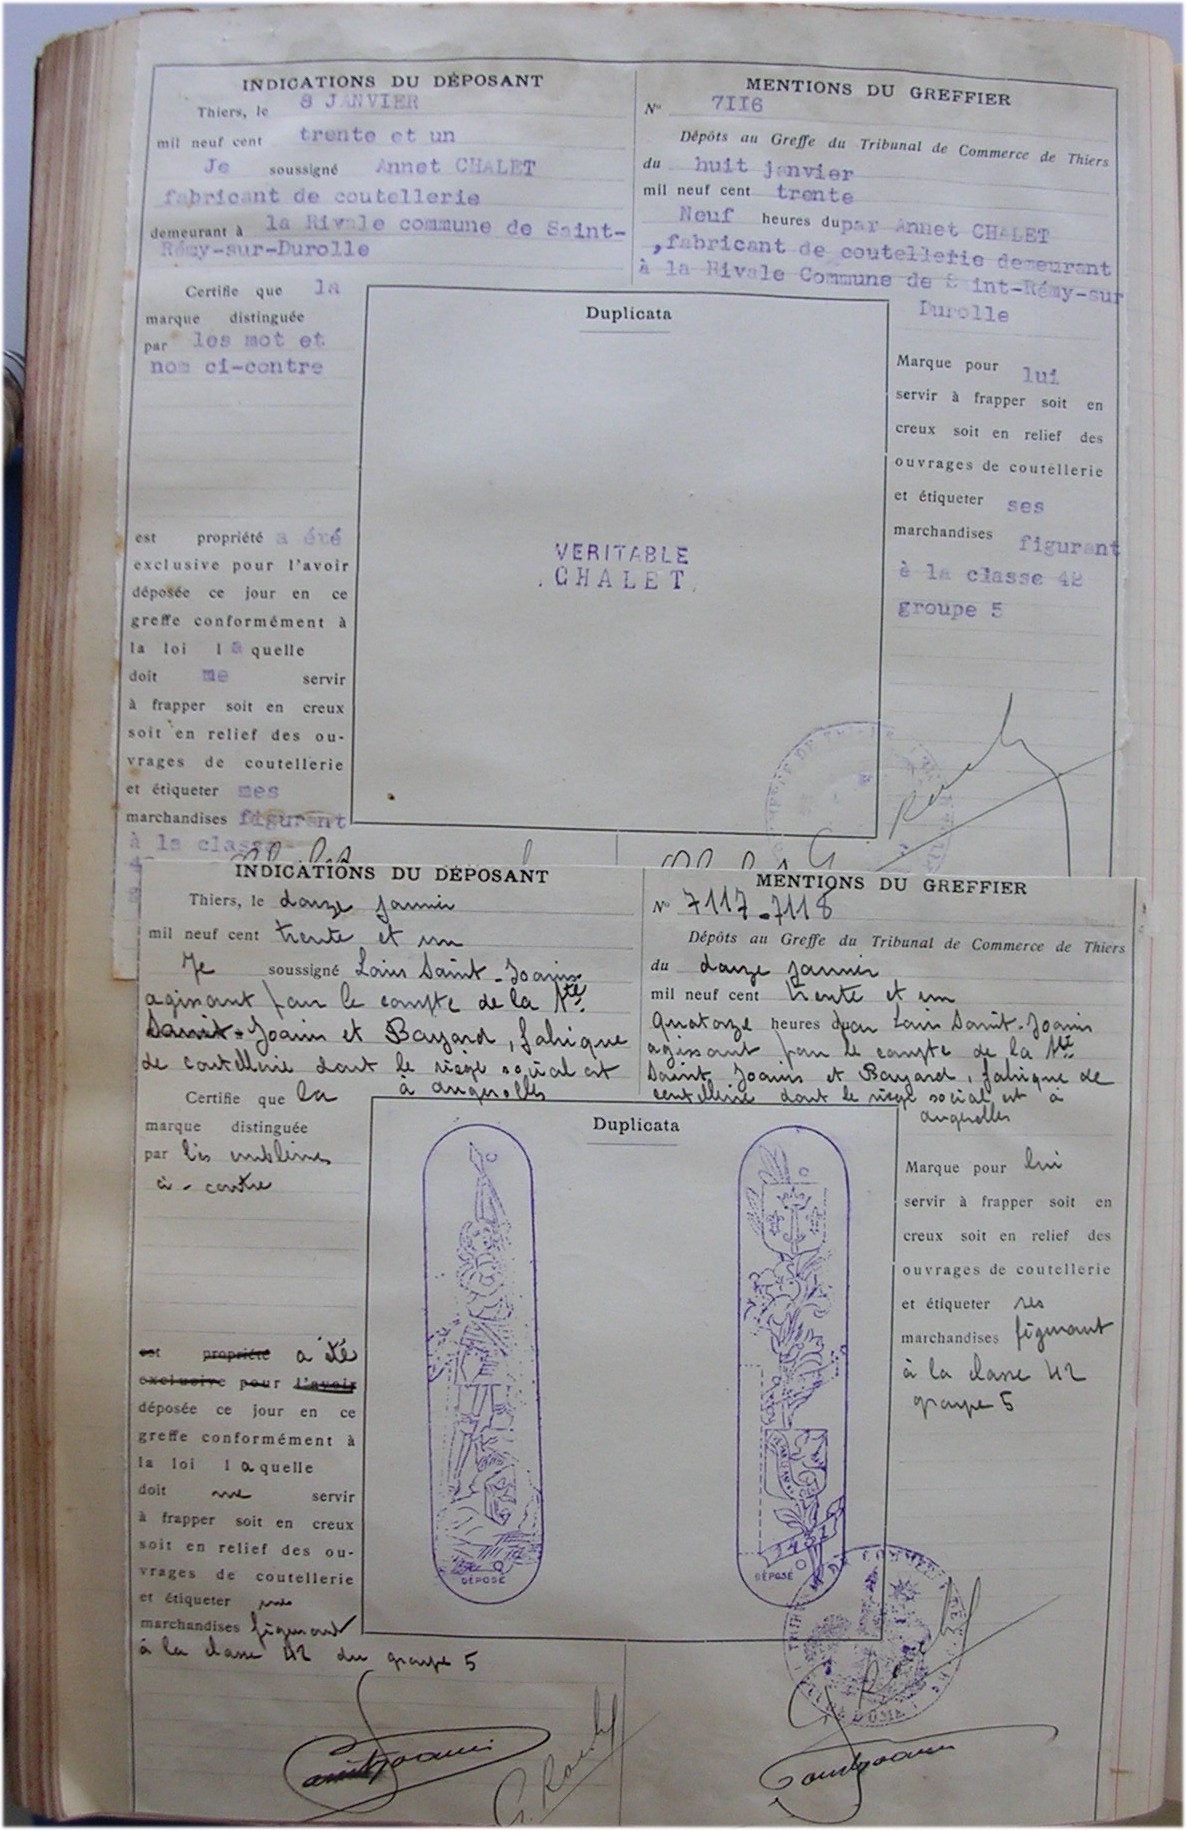 INDICATIONS DU DÉPOSANT
Thiers, le 8 JANVIER
mil neuf cent trente et un
Je soussigné Annet CHALET
fabricant de coutellerie
demeurant à la Rivale commune de Saint-
Rémy-sur-Durolle
Certifie que la
marque distinguée
par les mot et
nom ci-contre
est propriété a été
exclusive pour l'avoir
déposée ce jour en ce
greffe conformément à
la loi laquelle
doit me servir
à frapper soit en creux
soit en relief des ou-
vrages de coutellerie
et étiqueter mes
marchandises figurant
à la classe
MENTIONS DU GREFFIER
No 7II6
Dépôts au Greffe du Tribunal de Commerce de Thiers
du huit janvier
mil neuf cent trente
Neuf heures du par Annet CHALET
,fabricant de coutellerie demeurant
à la Rivale Commune de Saint-Rémy-sur
Durolle
Duplicata
VERITABLE
CHALET
Marque pour lui
servir à frapper soit en
creux soit en relief des
ouvrages de coutellerie
et étiqueter ses
marchandises figurant
à la classe 42
groupe 5
INDICATIONS DU DÉPOSANT
Thiers, le douze janvier
mil neuf cent trente et un
Je soussigné Louis Saint-Joanis
agissant pour le compte de la Sté
Saint-Joanis et Bayard, fabrique
de coutellerie dont le siège social est
à augerolles
Certifie que la
marque distinguée
par les emblèmes
ci-contre
est propriété a été
exclusive pour l'avoir
déposée ce jour en ce
greffe conformément à
la loi laquelle
doit me servir
à frapper soit en creux
soit en relief des ou-
vrages de coutellerie
et étiqueter mes
marchandises figurant
à la classe 42 du groupe 5
MENTIONS DU GREFFIER
No 7117-7118
Dépôts au Greffe du Tribunal de Commerce de Thiers
du douze janvier
mil neuf cent trente et un
quatorze heures du par Louis Saint-Joanis
agissant pour le compte de la Sté
Saint Joanis et Bayard, fabrique de
coutellerie dont le siège social est à
augerolles
Duplicata
DÉPOSÉ
DÉPOSÉ
Marque pour lui
servir à frapper soit en
creux soit en relief des
ouvrages de coutellerie
et étiqueter ses
marchandises figurant
à la classe 42
groupe 5